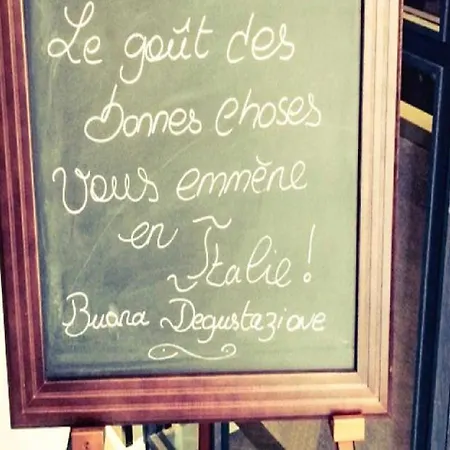 Le goût des
bonnes choses
vous emmène
en Italie!
Buona Degustazione